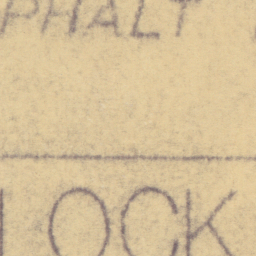 PHALT
LOCK